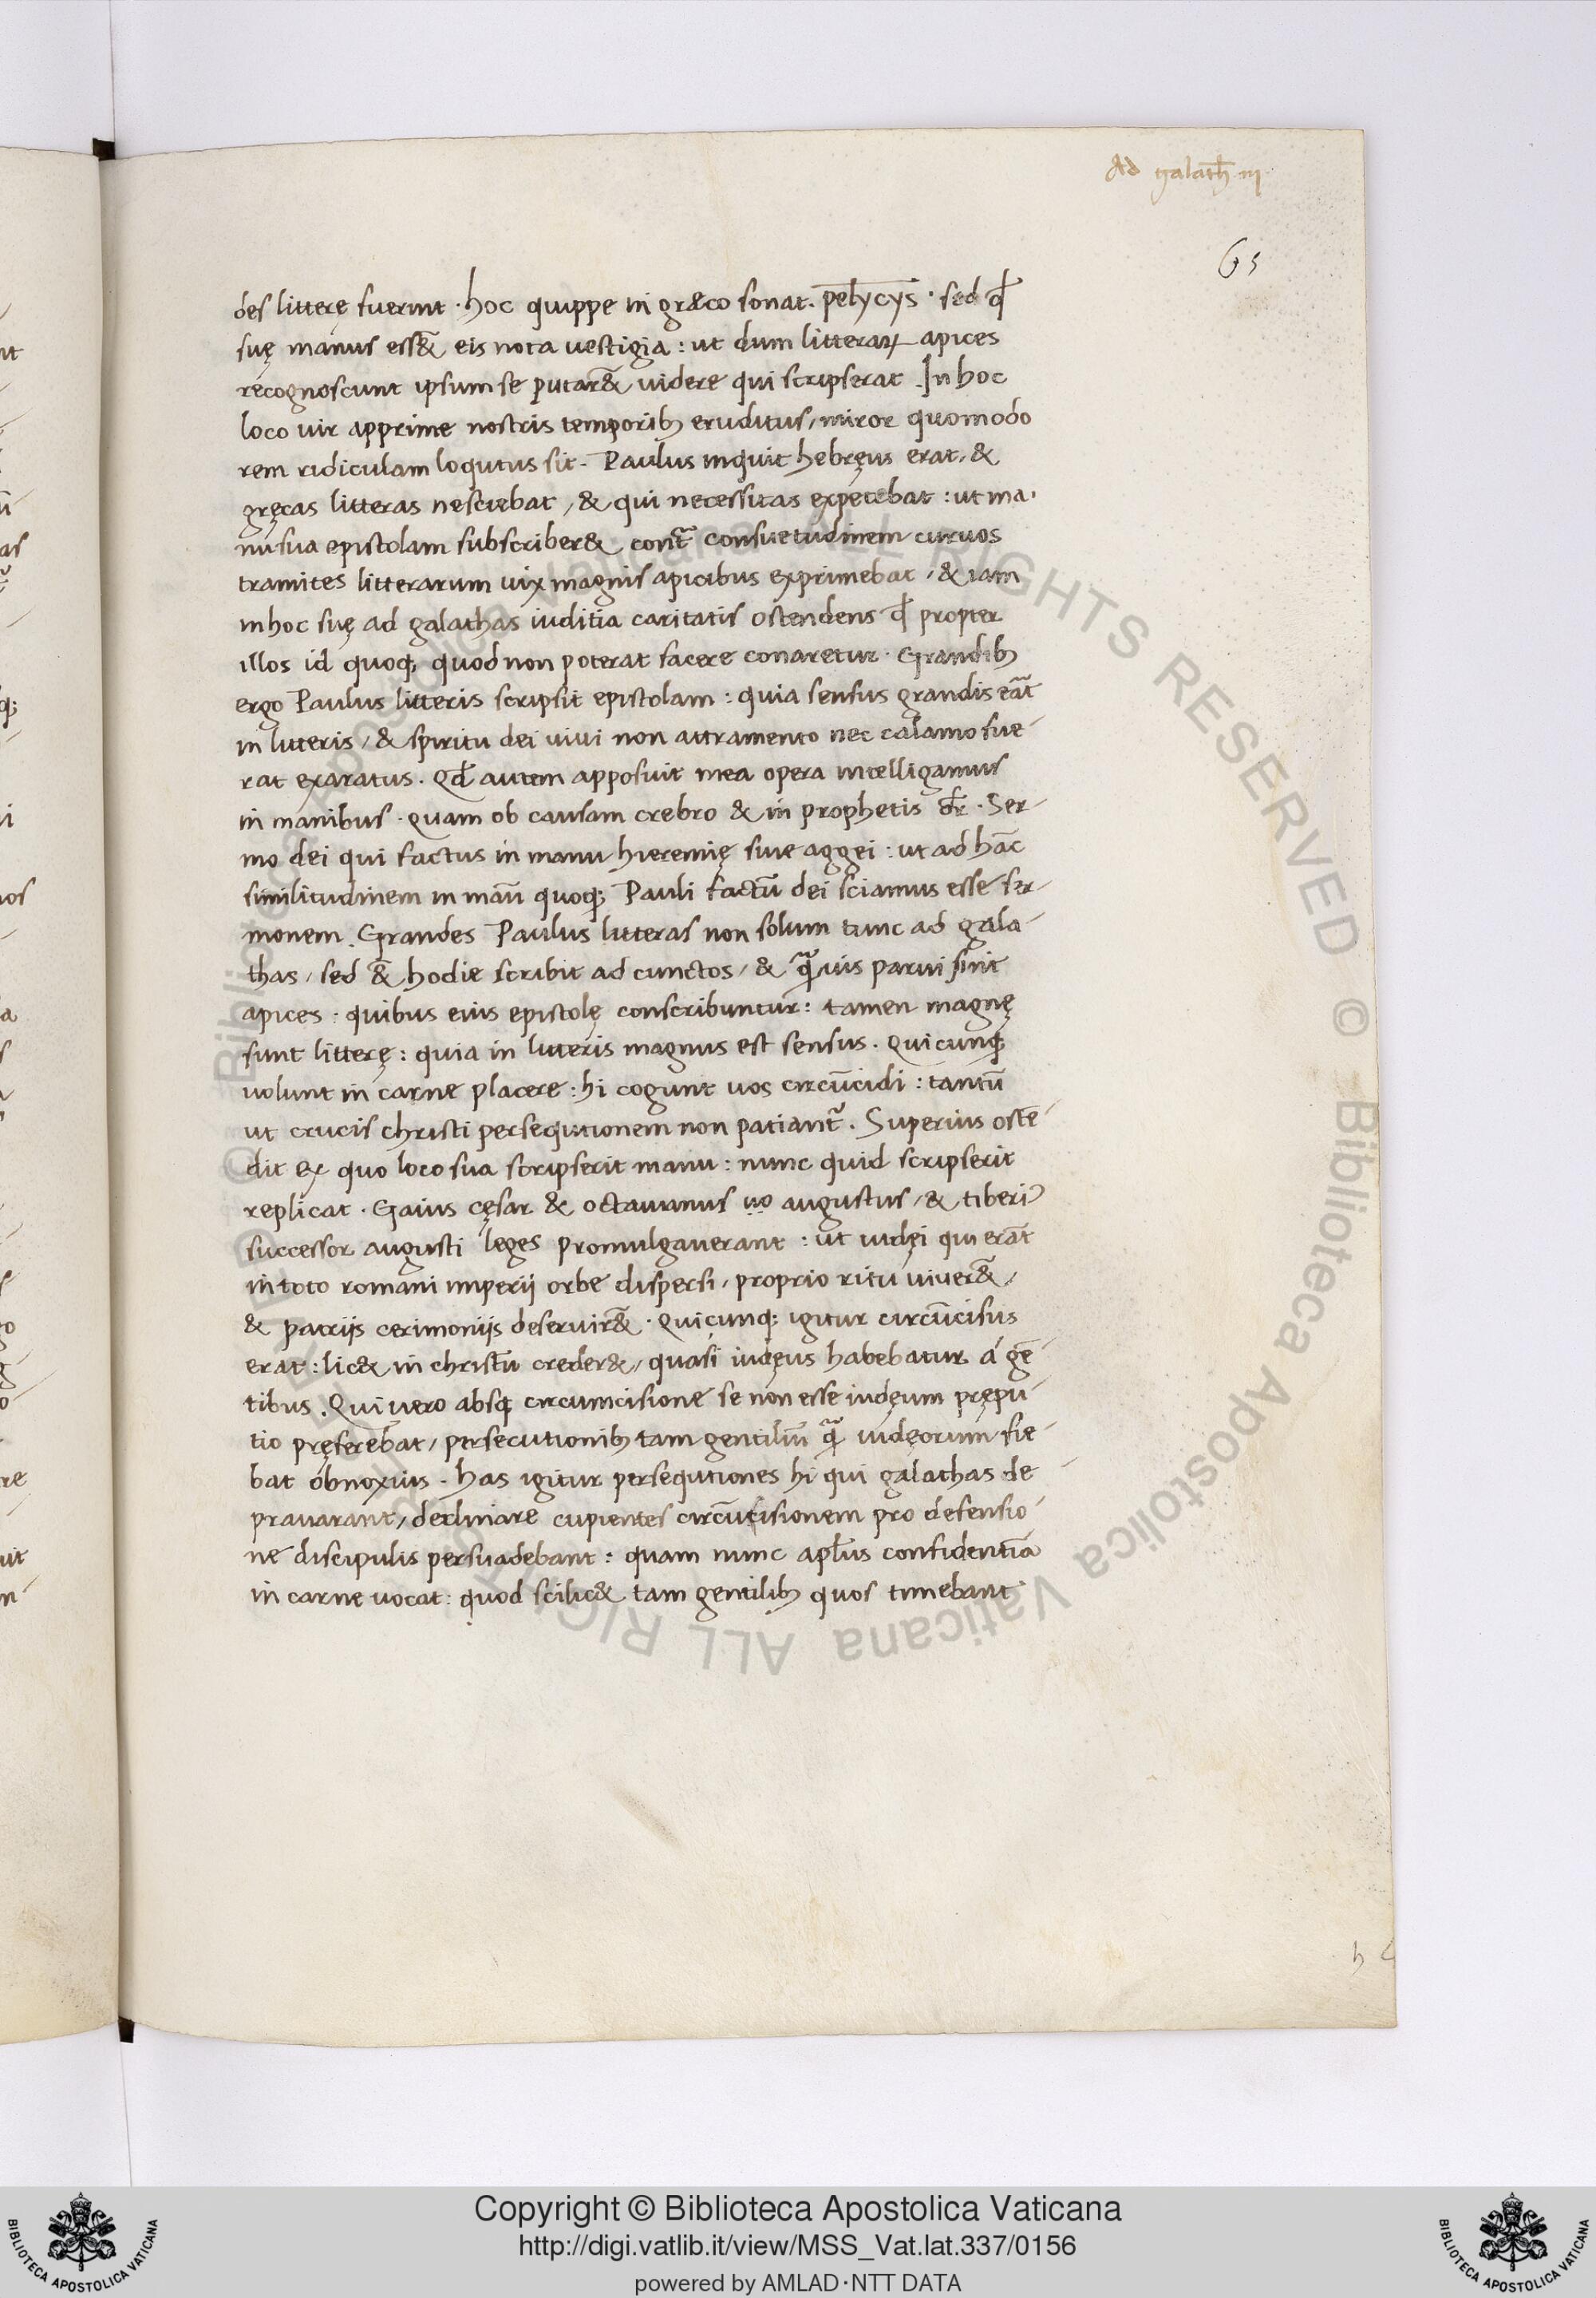 Ad galath̄ iii
65
des litterę fuerint · hoc quippe in græco sonat · pelycys · sed qđ
suę manus ess& eis nota uestigia : ut dum litteraꝝ apices
recognoscunt ipsum se putar& uidere qui scripserat . In hoc
loco uir apprime nostris temporibꝫ eruditus / miror quomodo
rem ridiculam loqutus sit . Paulus inquit hebręus erat / &
gręcas litteras nesciebat / & qui necessitas expetebat : ut ma
nu sua epistolam subscriber& contᷓ consuetudinem curuos
tramites litterarum uix magnis apicibus exprimebat / & iam
in hoc suę ad galathas iuditia caritatis ostendens qđ propter
illos id quoqꝫ quod non poterat facere conaretur · Grandibꝫ
ergo Paulus litteris scripsit epistolam : quia sensus grandis eāt
in litteris / & spiritu dei uiui non attramento nec calamo fue-
rat exaratus . Qđ autem apposuit mea opera intelligamus
in manibus · quam ob causam crebro & in prophetis dr̄ · Ser-
mo dei qui factus in manu hieremię siue aggei : ut ad hāc
similitudinem in manū quoqꝫ Pauli factū dei sciamus esse ser-
monem . Grandes Paulus litteras non solum tunc ad gala-
thas / sed & hodie scribit ad cunctos / & qᷓuis parui sint
apices : quibus eius epistolę conscribuntur : tamen magnę
sunt litterę : quia in litteris magnus est sensus . Quicunqꝫ
uolunt in carne placere : hi cogunt uos circūcidi : tantū
ut crucis christi persequtionem non patiant᷑ . Superius ostē-
dit ex quo loco sua scripserit manu : nunc quid scripserit
replicat · Gaius cęsar & octauianus uo augustus / & tiberiꝰ
successor augusti leges promulgauerant : ut iudęi qui erāt
in toto romani imperii orbe dispersi / proprio ritu uiuer& /
& patriis cerimoniis deseruir& · Quicunqꝫ igitur circūcisus
erat : lic& in christū creder& / quasi iudęus habebatur á gē-
tibus . Qui uero absqꝫ circumcisione se non esse iudęum prępu-
tio pręferebat / persecutionibꝫ tam gentiliū qᷓ iudęorum fie-
bat obnoxius . Has igitur persequtiones hi qui galathas de-
prauarant / declinare cupientes circūcisionem pro defensio-
ne discipulis persuadebant : quam nunc apl̄us confidentiā
in carne uocat : quod scilic& tam gentilibꝫ quos timebant
Copyright © Biblioteca Apostolica Vaticana
http://digi.vatlib.it/view/MSS_Vat.lat.337/0156
powered by AMLAD·NTT DATA